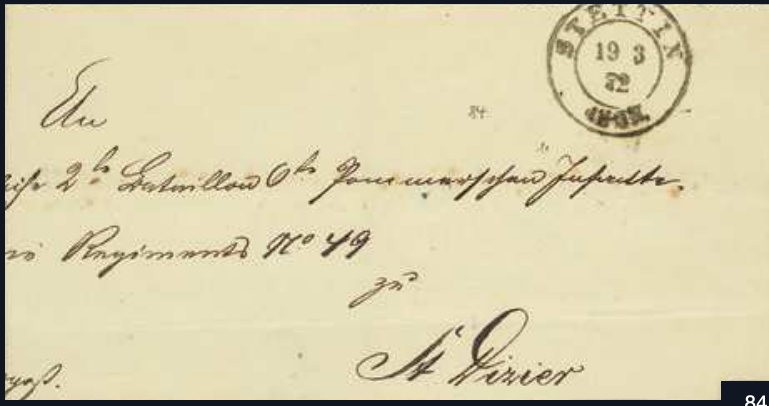 STETTIN
19 3
72
84
An
2ts Bataillon 6ts Pommerschen Infante-
Regiments No 49
zu
St Dizier
84